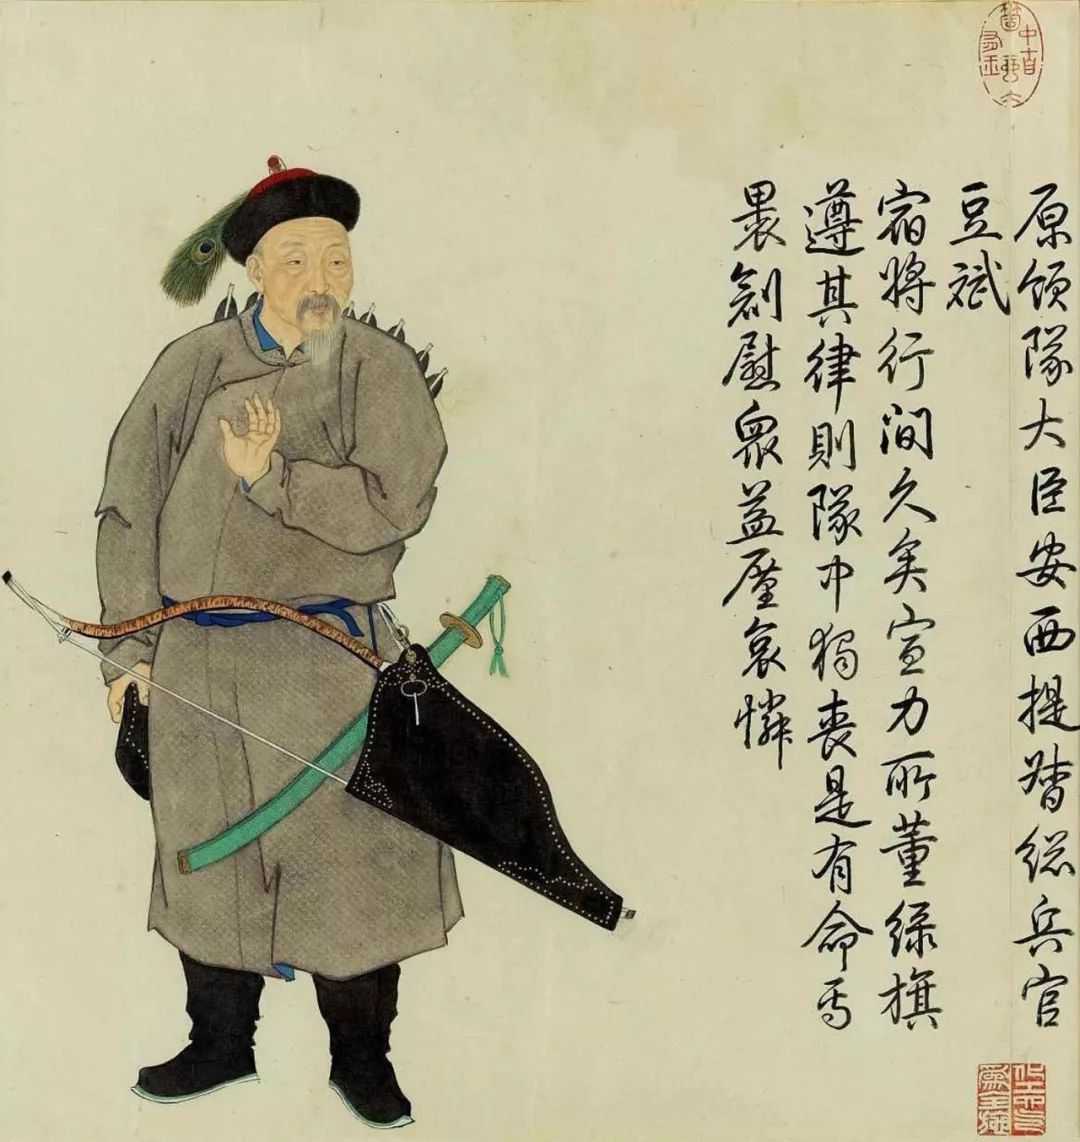 原領隊大臣安西提督総兵官
豆斌
宿將行間久矣宣力所董綠旗
遵其律則隊中獨喪是有命焉
裹創慰衆益廑哀憐